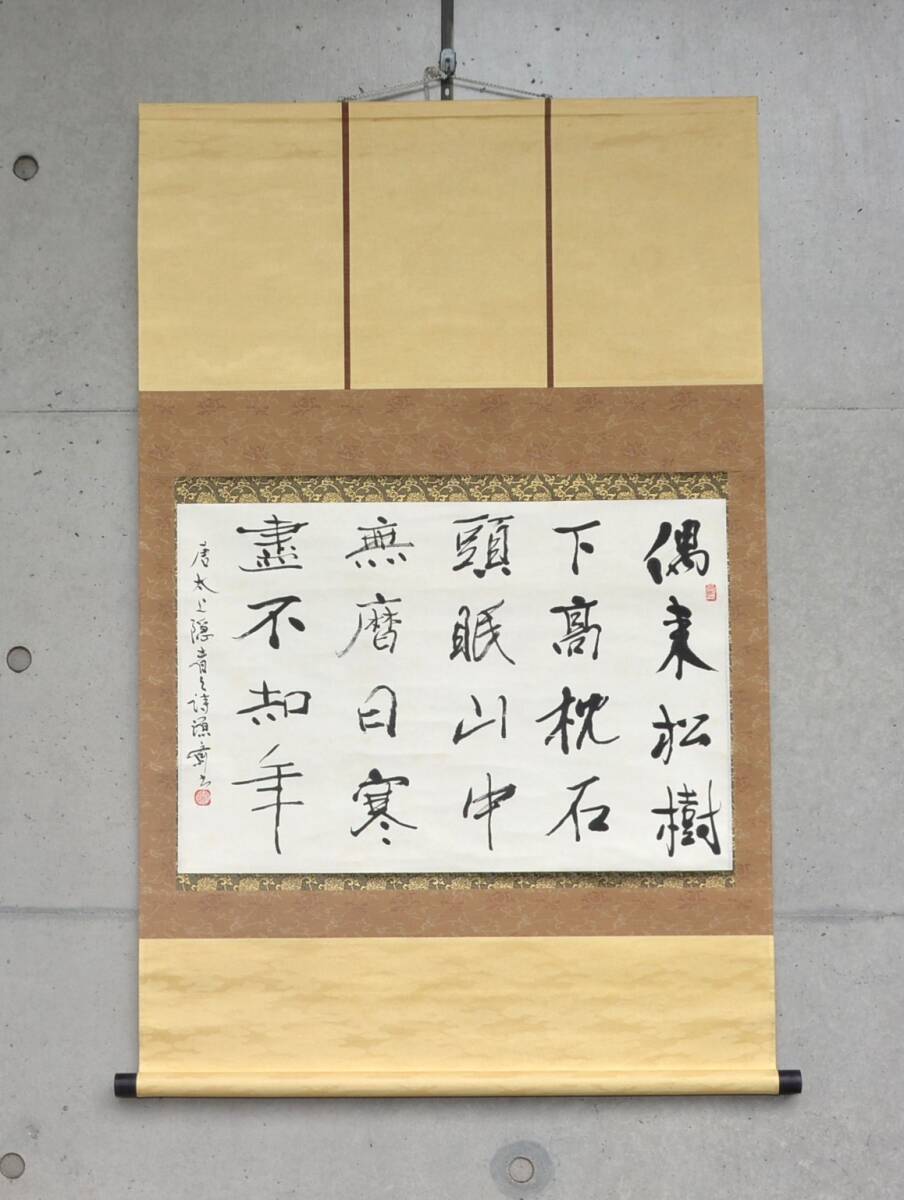 偶来松樹
下高枕石
頭眠山中
無暦日寒
盡不知年
唐太上隠者之詩 齋書